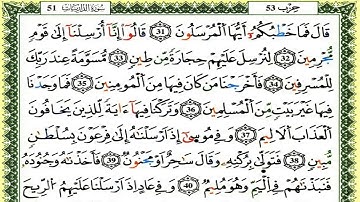 حِزْب 53
سُورَةُ الذَّارِيَات 51
قَالَ فَمَا خَطْبُكُمْ أَيُّهَا الْمُرْسَلُونَ 31 قَالُوا إِنَّا أُرْسِلْنَا إِلَى قَوْمٍ
مُّجْرِمِينَ 32 لِنُرْسِلَ عَلَيْهِمْ حِجَارَةً مِّن طِينٍ 33 مُّسَوَّمَةً عِندَ رَبِّكَ
لِلْمُسْرِفِينَ 34 فَأَخْرَجْنَا مَن كَانَ فِيهَا مِنَ الْمُؤْمِنِينَ 35 فَمَا وَجَدْنَا
فِيهَا غَيْرَ بَيْتٍ مِّنَ الْمُسْلِمِينَ 36 وَتَرَكْنَا فِيهَا ءَايَةً لِّلَّذِينَ يَخَافُونَ
الْعَذَابَ الْأَلِيمَ 37 وَفِي مُوسَى إِذْ أَرْسَلْنَاهُ إِلَى فِرْعَوْنَ بِسُلْطَانٍ
مُّبِينٍ 38 فَتَوَلَّى بِرُكْنِهِ وَقَالَ سَاحِرٌ أَوْ مَجْنُونٌ 39 فَأَخَذْنَاهُ وَجُنُودَهُ
فَنَبَذْنَاهُمْ فِي الْيَمِّ وَهُوَ مُلِيمٌ 40 وَفِي عَادٍ إِذْ أَرْسَلْنَا عَلَيْهِمُ الرِّيحَ